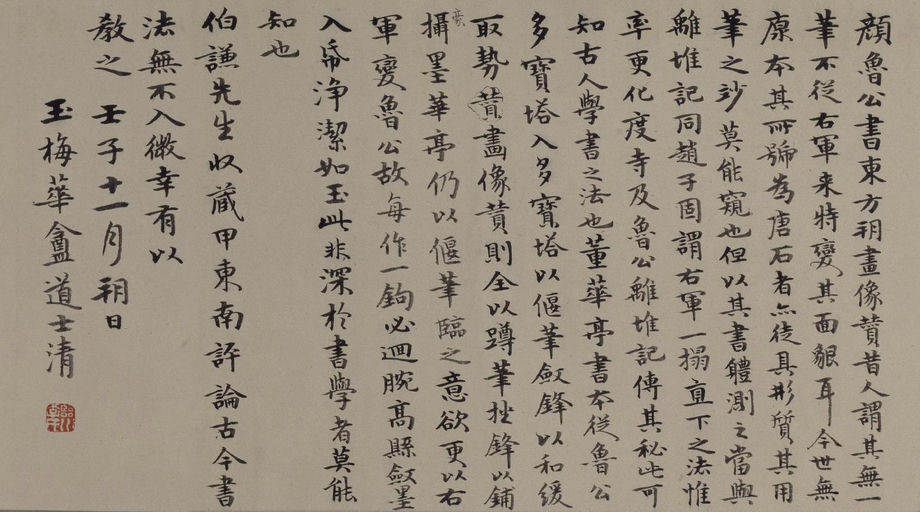 顏魯公書東方朔畫像贊昔人謂其無一
筆不從右軍来特變其面貌耳今世無
原本其所號為唐石者亦徒具形質其用
筆之妙莫能窺也但以其書體測之當與
離堆記同趙子固謂右軍一搨直下之法惟
率更化度寺及魯公離堆記傳其秘此可
知古人學書之法也董華亭書本從魯公
多寶塔入多寳塔以偃筆斂鋒以和緩
取勢贊畫像贊則全以蹲筆挫鋒以鋪
豪
攝墨華亭仍以偃筆臨之意欲更以右
軍變魯公故每作一鉤必迴腕高縣斂墨
入帋淨潔如玉此非深於書學者莫能
知也
伯謙先生收藏甲東南評論古今書
法無不入微幸有以
教之 壬子十一月朔日
玉梅華盦道士清